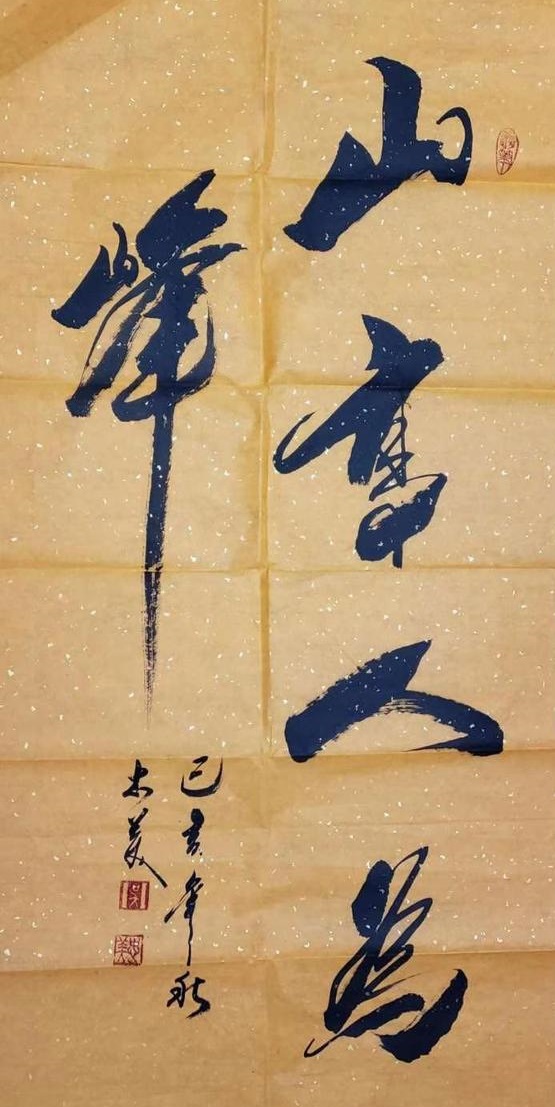 山高人為
峰
己亥年秋
美